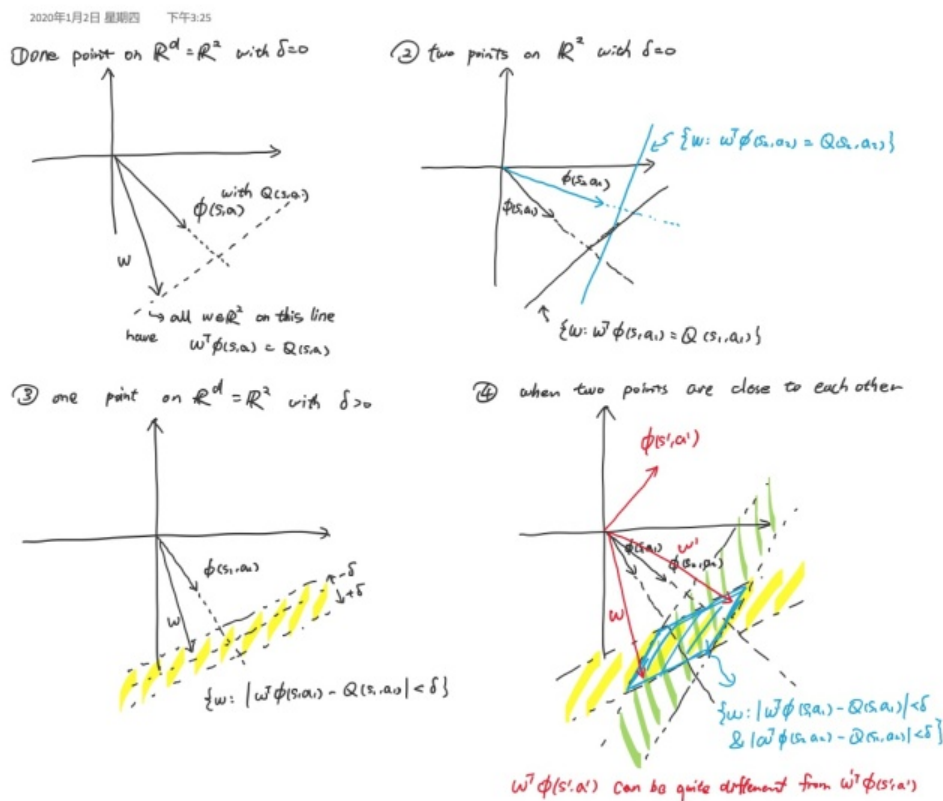 2020年1月2日 星期四 下午3:25
① one point on ℝᵈ = ℝ² with δ=0
with Q(s,a)
ϕ(s,a)
w
↳ all w∈ℝ² on this line
have wᵀϕ(s,a) = Q(s,a)
② two points on ℝ² with δ=0
{w: wᵀϕ(s₂,a₂) = Q(s₂,a₂)}
ϕ(s₂,a₂)
ϕ(s₁,a₁)
{w: wᵀϕ(s₁,a₁) = Q(s₁,a₁)}
③ one point on ℝᵈ = ℝ² with δ>0
ϕ(s₁,a₁)
-δ
+δ
w
{w: |wᵀϕ(s₁,a₁) - Q(s₁,a₁)| < δ}
④ when two points are close to each other
ϕ(s',a')
ϕ(s₁,a₁)
w'
ϕ(s₂,a₂)
w
{w: |wᵀϕ(s₁,a₁) - Q(s₁,a₁)| < δ
& |wᵀϕ(s₂,a₂) - Q(s₂,a₂)| < δ}
wᵀϕ(s',a') can be quite different from w'ᵀϕ(s',a')